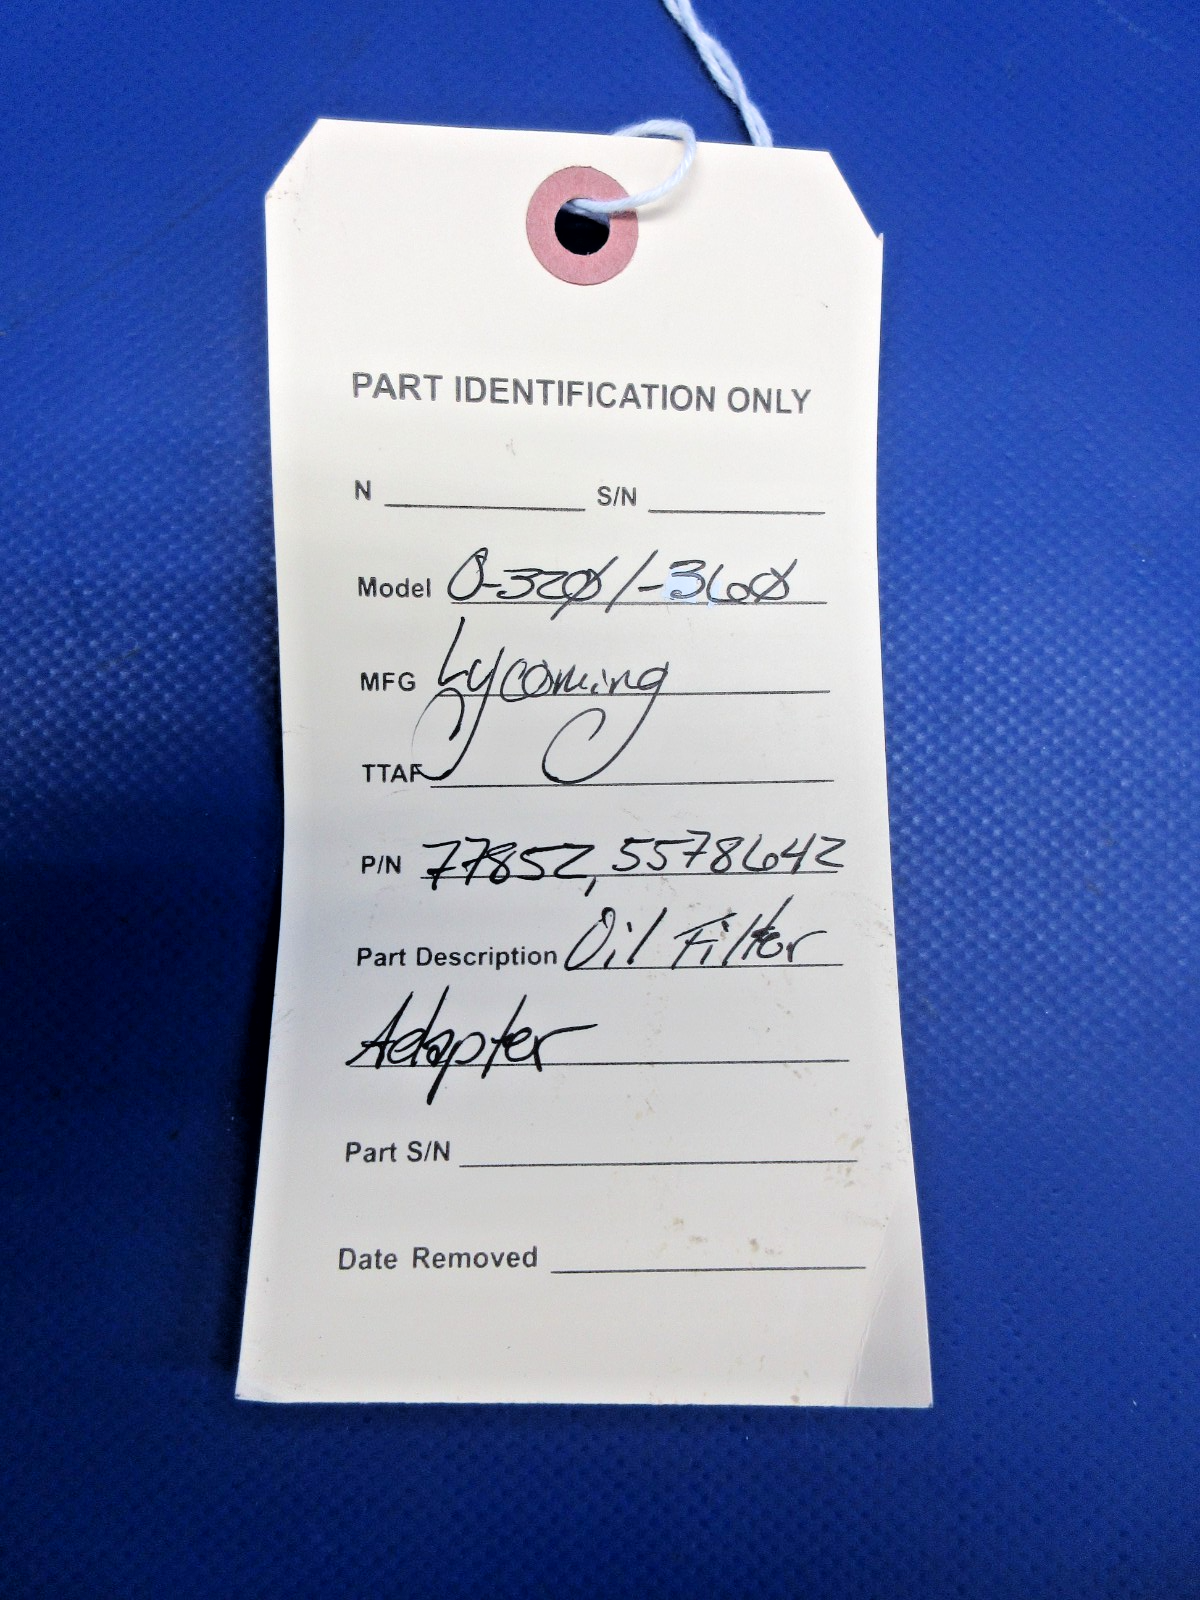 PART IDENTIFICATION ONLY
N S/N
Model O-320/-360
MFG Lycoming
TTAF
P/N 77852, 5578642
Part Description Oil Filter
Adapter
Part S/N
Date Removed